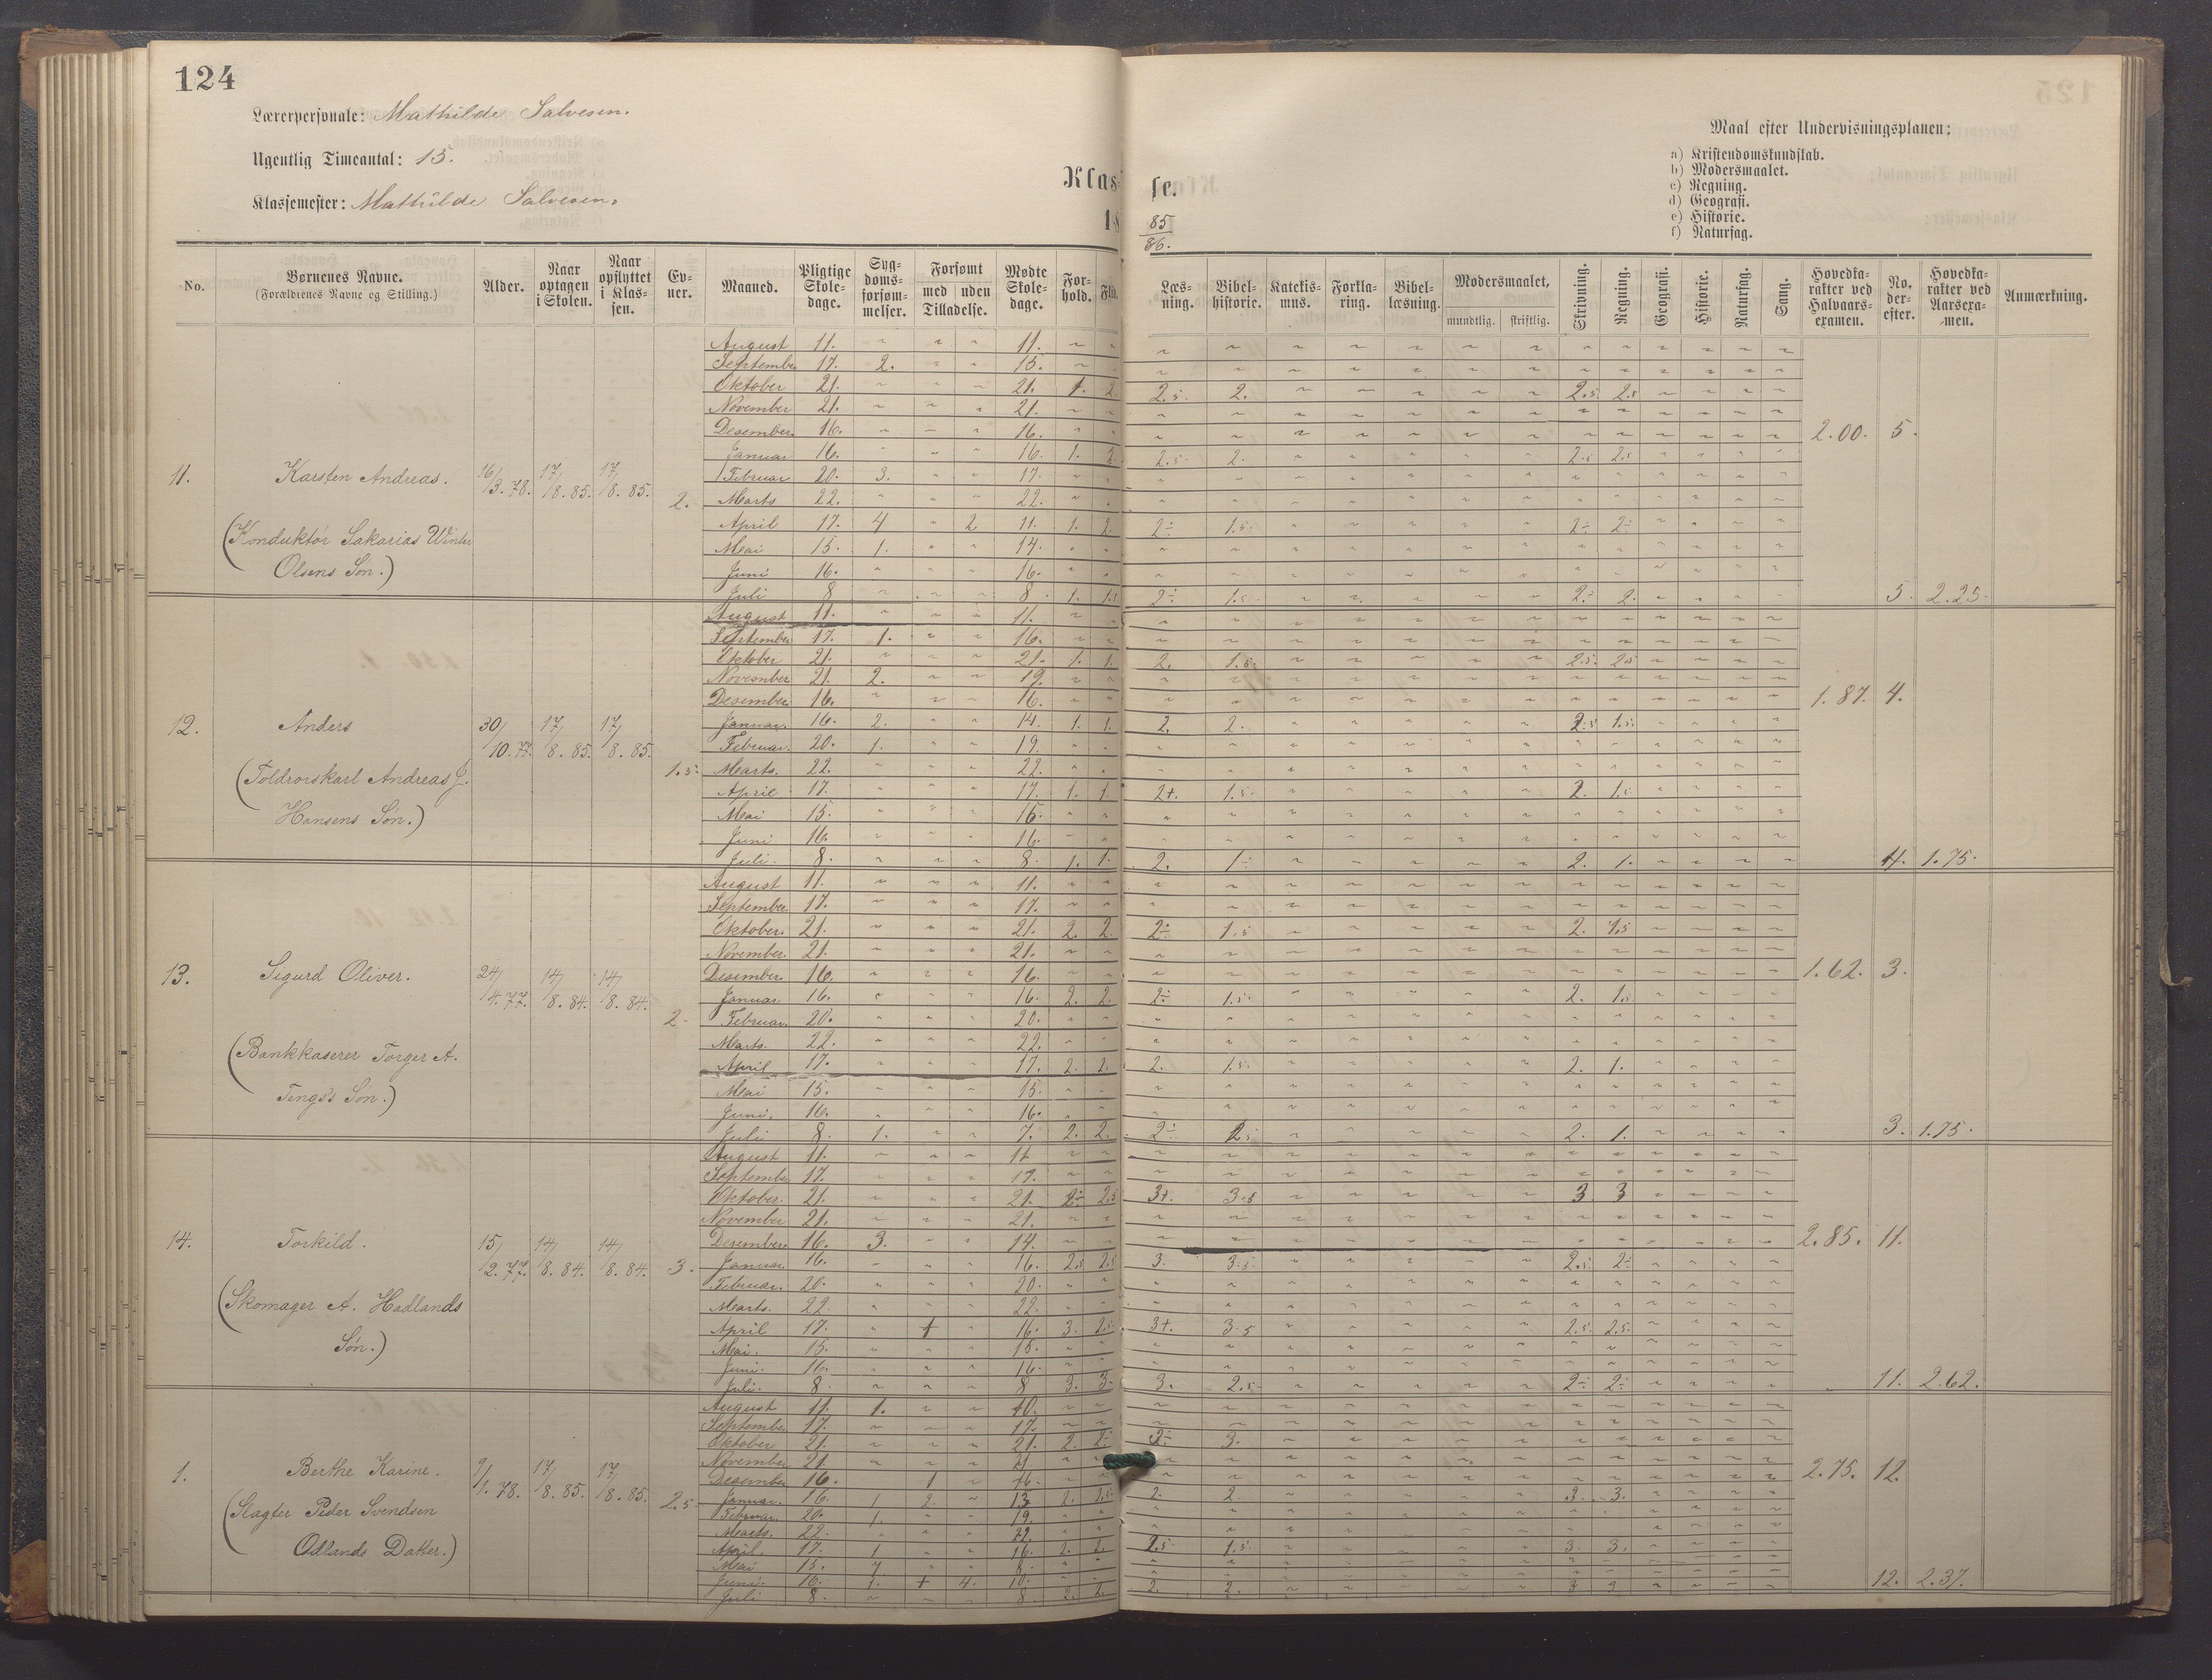 124
Lærerpersonale: Mathilde Salvesen.
Ugentlig Timeantal: 15.
Klassemester: Mathilde Salvesen.
Klasse.
18 85/86.
Maal efter Undervisningsplanen:
a) Kristendomskundskab.
b) Modersmaalet.
c) Regning.
d) Geografi.
e) Historie.
f) Naturfag.
No. Børnenes Navne. (Forældrenes Navne og Stilling.) Alder. Naar optagen i Skolen. Naar opflyttet i Klassen. Evner. Maaned. Pligtige Skoledage. Sygdomsforsømmelser. Forsømt med uden Tilladelse. Mødte Skoledage. Forhold. Flid. Læsning. Bibelhistorie. Katekismus. Forklaring. Bibellæsning. Modersmaalet, mundtlig. skriftlig. Skrivning. Regning. Geografi. Historie. Naturfag. Sang. Hovedkarakter ved Halvaarsexamen. No. derefter. Hovedkarakter ved Aarsexamen. Anmærkning.
11. Karsten Andreas. 16/3.78. 17/8.85. 17/8.85. 2.
(Konduktør Sakarias Winter
Olsens Søn.)
August 11. 11.
September 17. 2. 15.
Oktober 21. 21. 1. 2. 2.5. 2. 2.5. 2.5
November 21. 21.
Desember. 16. 16. 2.00. 5.
Januar 16. 16. 1. 2. 2.5. 2. 2.5 2.5
Februar 20. 3. 17.
Marts 22. 22.
April 17. 4 2 11. 1. 2. 2÷ 1.5. 2÷ 2÷
Mai 15. 1. 14.
Juni 16. 16.
Juli 8 8. 1. 1.5 2÷ 1.5. 2÷ 2. 5. 2.25.
12. Anders 30/10.77. 17/8.85. 17/8.85. 1.5.
(Toldrorskarl Andreas J.
Hansens Søn.)
August 11. 11.
September 17. 1. 16.
Oktober 21. 21. 1. 1. 2. 1.5. 2.5. 2.5
November 21. 2. 19.
Desember. 16. 16. 1.87. 4.
Januar. 16. 2. 14. 1. 1. 2. 2. 2.5 1.5.
Februar. 20. 1. 19.
Marts. 22. 22.
April 17. 17. 1. 1. 2+. 1.5. 2. 1.5
Mai 15. 15.
Juni 16. 16.
Juli. 8. 8. 1. 1. 2. 1÷ 2. 1. 4. 1.75.
13. Sigurd Oliver. 24/4.77. 14/8.84. 14/8.84. 2.
(Bankkaserer Torger A.
Tengs's Søn.)
August 11. 11.
September 17. 17.
Oktober. 21. 21. 2. 2. 2÷ 1.5 2. 1.5
November. 21. 21.
Desember. 16. 16. 1.62. 3.
Januar. 16. 16. 2. 2. 2÷ 1.5. 2. 1.5
Februar. 20. 20.
Marts. 22. 22.
April 17. 17. 2. 2. 2. 1.5. 2. 1.
Mai 15. 15.
Juni. 16. 16.
Juli 8. 1. 7. 2. 2. 2÷ 2. 1. 3. 1.75.
14. Torkild. 15/2.77. 14/8.84. 14/8.84. 3.
(Skomager A. Hadlands
Søn.)
August 11. 11
September 17. 17.
Oktober. 21. 21. 2÷ 2.5 3+. 3.5 3 3
November 21. 21.
Desember 16. 3. 14. 2.85. 11.
Januar. 16. 16. 2.5 2.5 3. 3.5 2.5. 2÷
Februar. 20. 20.
Marts. 22. 22.
April 17. 16. 3. 2.5. 3+. 3.5 2.5. 2.5.
Mai. 15. 15.
Juni. 16. 16.
Juli. 8. 8 3. 3. 3. 2.5. 2÷ 2÷ 11. 2.62.
1. Berthe Karine. 9/1.78. 17/8.85. 17/8.85. 2.5
(Slagter Peder Svendsen
Odlands Datter.)
August 11. 1. 10.
September 17. 17.
Oktober 21. 21. 2. 2÷ 2÷ 3.
November 21. 21
Desember 16. 1 16. 2.75. 12.
Januar. 16. 1 2. 13 2. 2.5. 2. 2 3. 3.
Februar. 20. 1. 19.
Marts. 22. 22.
April. 17. 1 16. 2. 2. 2.5 1.5. 3. 3.
Mai 15. 7 8.
Juni. 16. 1. 4. 10.
Juli 8. 8. 2. 2. 2. 2. 3 3 12. 2.37.